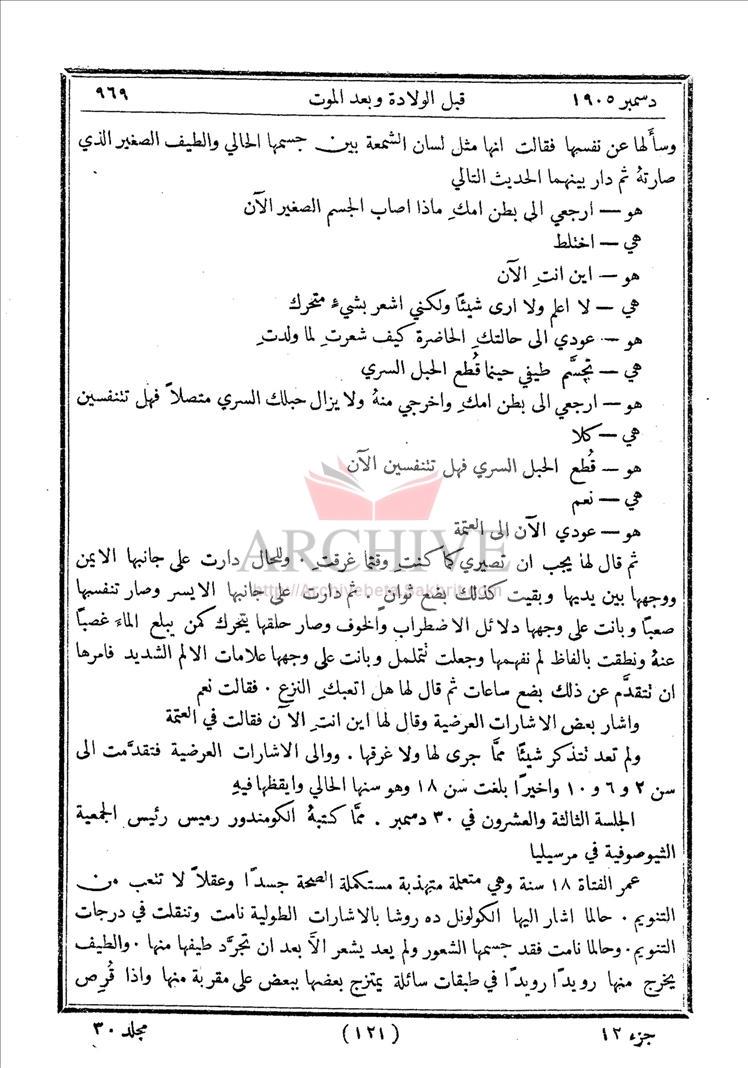 دسمبر ١٩٠٥ قبل الولادة وبعد الموت ٩٦٩
وسأَلها عن نفسها فقالت انها مثل لسان الشمعة بين جسمها الحالي والطيف الصغير الذي
صارتهُ ثم دار بينهما الحديث التالي
هو — ارجعي الى بطن امكِ ماذا اصاب الجسم الصغير الآن
هي — اختلط
هو — اين انتِ الآن
هي — لا اعلم ولا ارى شيئًا ولكني اشعر بشيءٍ متحرك
هو — عودي الى حالتكِ الحاضرة كيف شعرتِ لما ولدتِ
هي — تجسَّم طيفي حينما قُطع الحبل السري
هو — ارجعي الى بطن امكِ واخرجي منهُ ولا يزال حبلك السري متصلاً فهل تتنفسين
هي — كلا
هو — قُطع الحبل السري فهل تتنفسين الآن
هي — نعم
هو — عودي الآن الى العتمة
ARCHIVE
http://Archivebeta.Sakhrit.com
ثم قال لها يجب ان تصيري كما كنتِ وقتما غرقتِ . وللحال دارت على جانبها الايمن
ووجهها بين يديها وبقيت كذلك بضع ثوانٍ ثم دارت على جانبها الايسر وصار تنفسها
صعبًا وبانت على وجهها دلائل الاضطراب والخوف وصار حلقها يتحرك كمن يبلع الماءَ غصبًا
عنهُ ونطقت بالفاظ لم نفهمها وجعلت تتململ وبانت على وجهها علامات الالم الشديد فامرها
ان تتقدَّم عن ذلك بضع ساعات ثم قال لها هل اتعبكِ النزع . فقالت نعم
واشار بعض الاشارات العرضية وقال لها اين انتِ الآن فقالت في العتمة
ولم تعد تتذكر شيئًا ممَّا جرى لها ولا غرقها . ووالى الاشارات العرضية فتقدَّمت الى
سن ٢ و ٦ و ١٠ واخيرًا بلغت سن ١٨ وهو سنها الحالي وايقظها فيهِ
الجلسة الثالثة والعشرون في ٣٠ دسمبر . ممَّا كتبهُ الكومندور رميس رئيس الجمعية
الثيوصوفية في مرسيليا
عمر الفتاة ١٨ سنة وهي متعلمة متهذبة مستكملة الصحة جسدًا وعقلاً لا تتعب من
التنويم . حالما اشار اليها الكولونل ده روشا بالاشارات الطولية نامت وتنقلت في درجات
التنويم . وحالما نامت فقد جسمها الشعور ولم يعد يشعر الاَّ بعد ان تجرَّد طيفها منها . والطيف
يخرج منها رويدًا رويدًا في طبقات سائلة يمتزج بعضها ببعض على مقربة منها واذا قُرِص
جزء ١٢ (١٢١) مجلد ٣٠